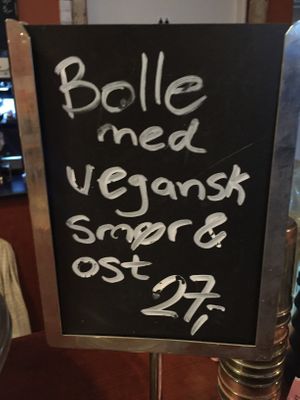 Bolle
med
vegansk
smør &
ost
27,-